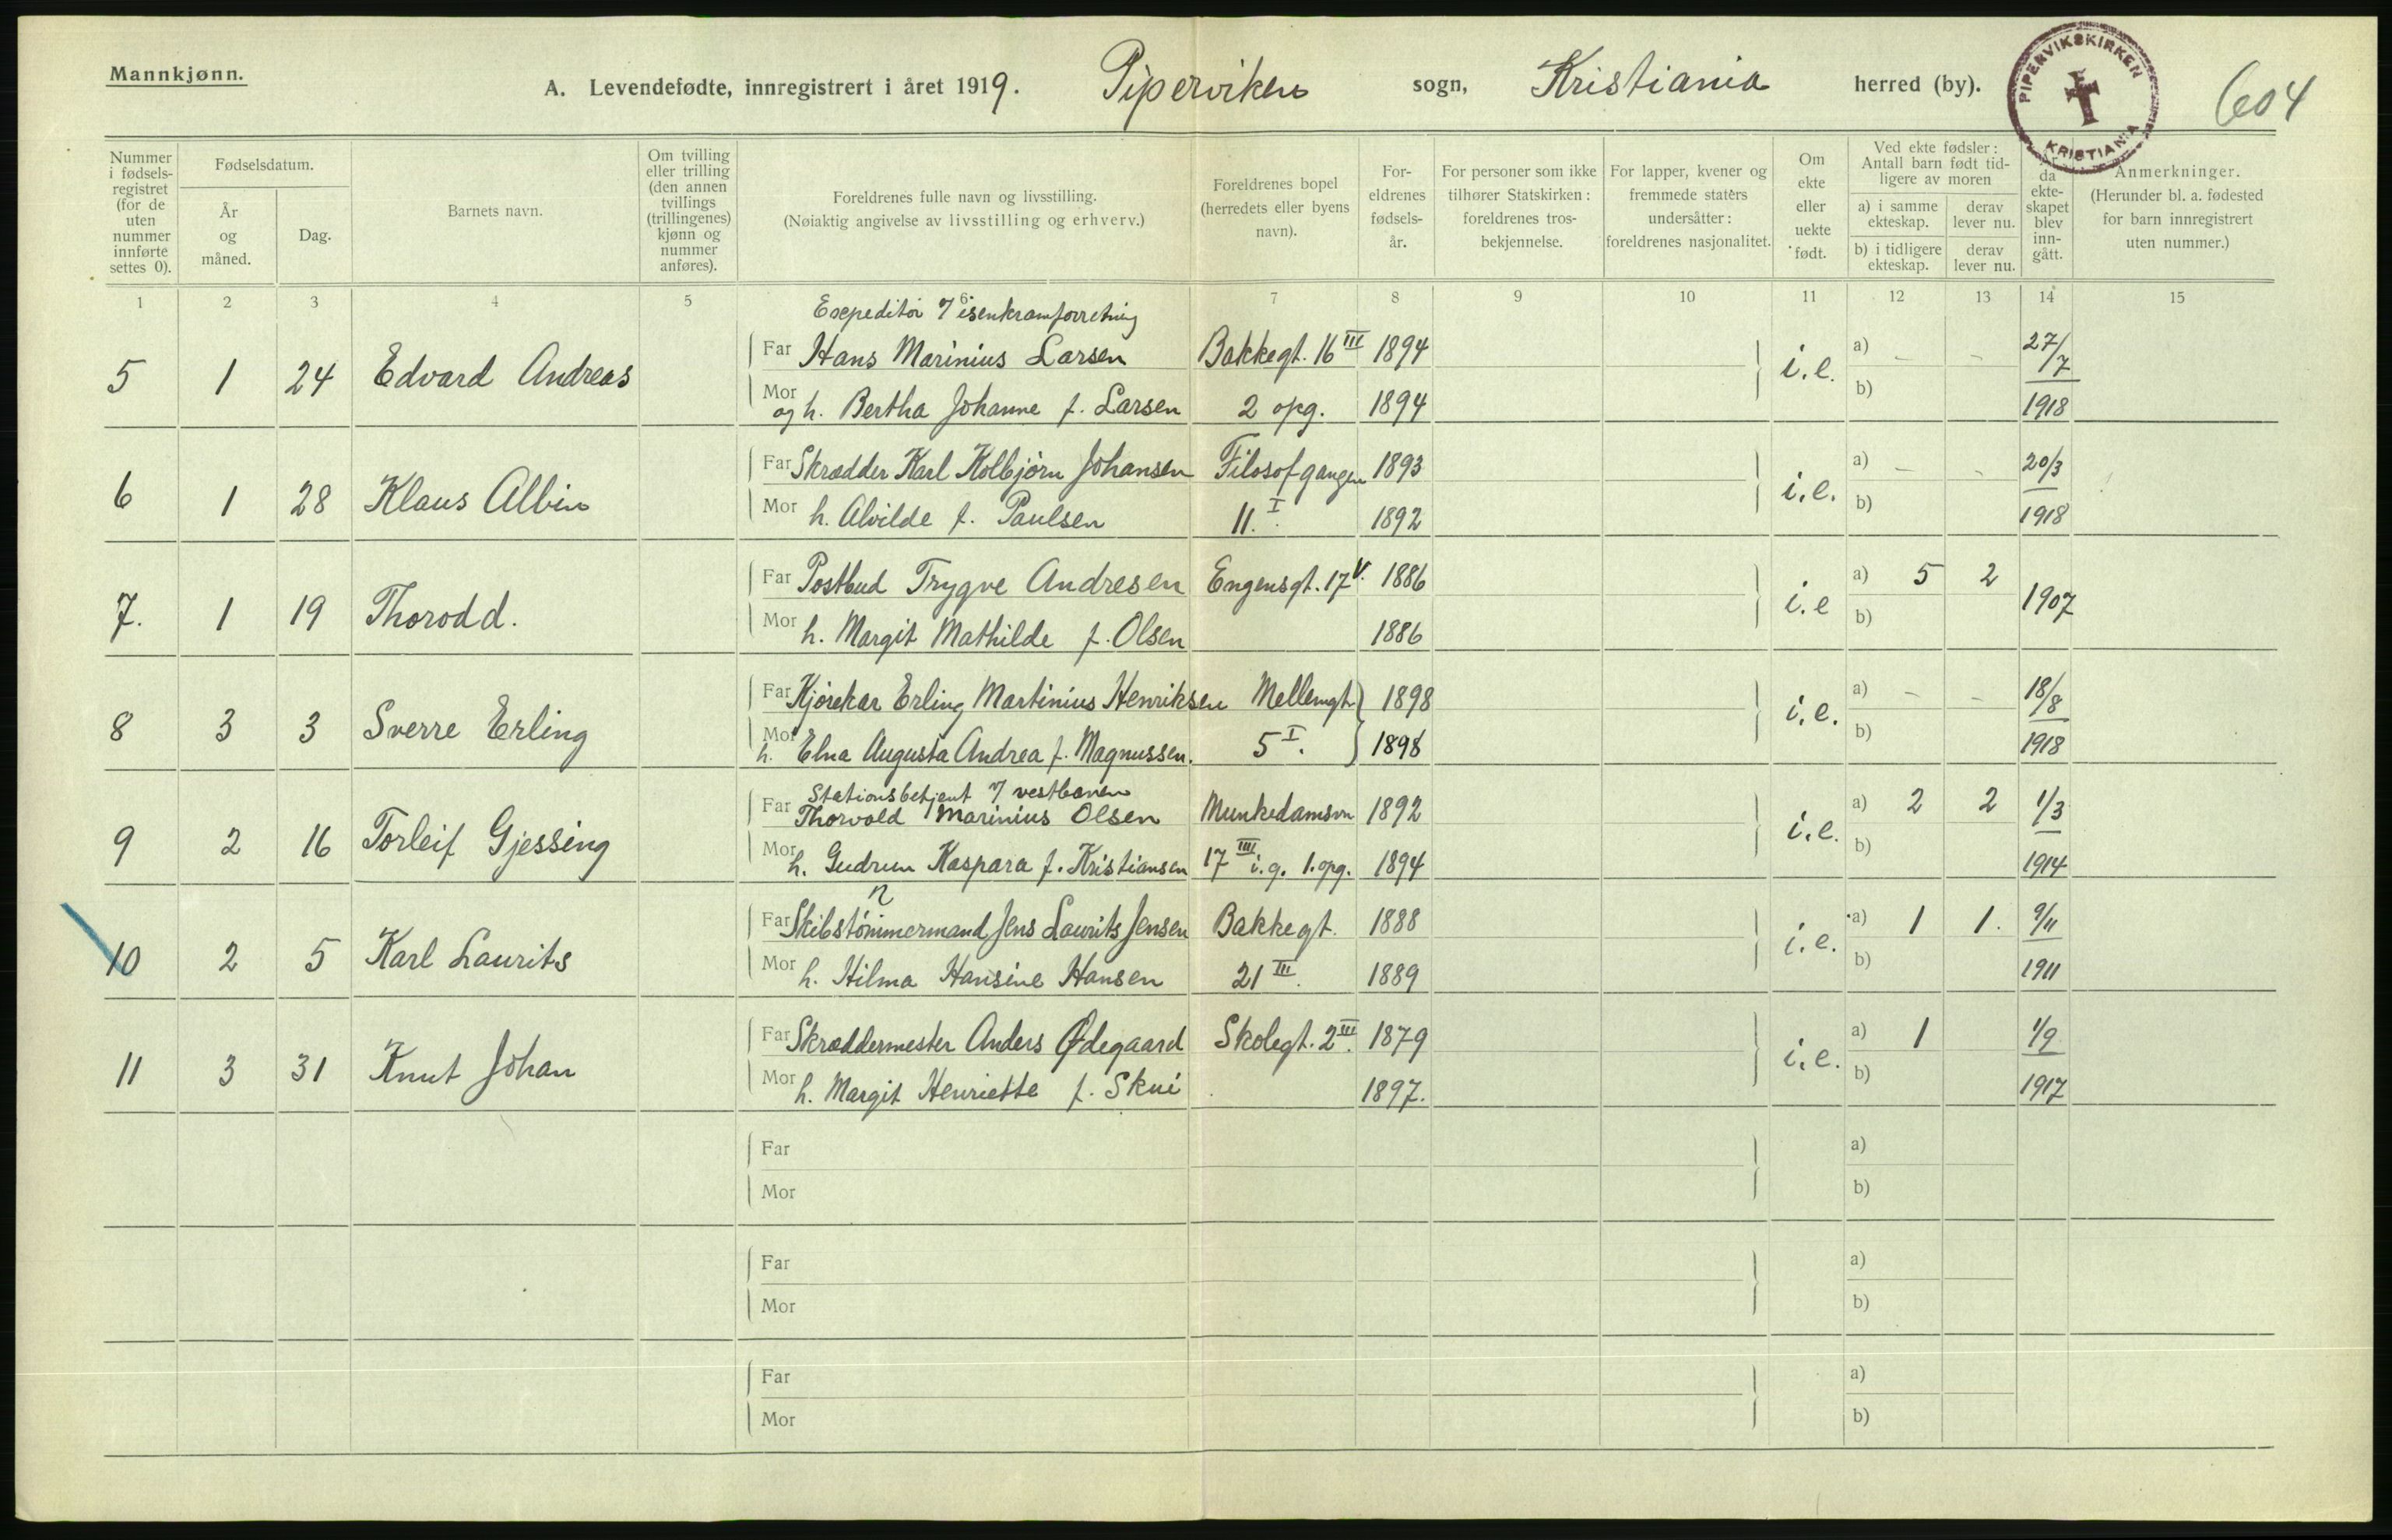 Mannkjønn.
A. Levendefødte, innregistrert i året 1919. Piperviken sogn, Kristiania herred (by).
PIPERVIKSKIRKEN KRISTIANIA
604
Nummer i fødsels- registret (for de uten nummer innførte settes 0).
Fødselsdatum.
År og måned.
Dag.
Barnets navn.
Om tvilling eller trilling (den annen tvillings (trillingenes) kjønn og nummer anføres).
Foreldrenes fulle navn og livsstilling.
(Nøiaktig angivelse av livsstilling og erhverv.)
Foreldrenes bopel (herredets eller byens navn).
For- eldrenes fødsels- år.
For personer som ikke tilhører Statskirken: foreldrenes tros- bekjennelse.
For lapper, kvener og fremmede staters undersåtter: foreldrenes nasjonalitet.
Om ekte eller uekte født.
Ved ekte fødsler: Antall barn født tid- ligere av moren
a) i samme ekteskap.
derav lever nu.
b) i tidligere ekteskap.
derav lever nu.
da ekte- skapet blev inn- gått.
Anmerkninger.
(Herunder bl. a. fødested for barn innregistrert uten nummer.)
1 2 3 4 5 6 7 8 9 10 11 12 13 14 15
Expeditør i isenkramforretning
5 1 24 Edvard Andreas Far Hans Marinius Larsen Bakkegt. 16 III 1894 i.e. a) – – 27/7
Mor og h. Bertha Johanne f. Larsen 2 opg. 1894 b) 1918
6 1 28 Klaus Albin Far Skrædder Karl Kolbjørn Johansen Filosofgangen 1893 i.e. a) – – 20/3
Mor h. Alvilde f. Paulsen 11. I. 1892 b) 1918
7. 1 19 Thorodd. Far Postbud Trygve Andresen Engensgt. 17 V. 1886 i.e a) 5 2 1907
Mor h. Margit Mathilde f. Olsen 1886 b)
8 3 3 Sverre Erling Far Kjørekar Erling Martinius Henriksen Mellemgt. 1898 i.e. a) – – 18/8
Mor h. Elna Augusta Andrea f. Magnussen. 5 I. 1898 b) 1918
Stationsbetjent v vestbanen
9 2 16 Torleif Gjessing Far Thorvald Marinius Olsen Munkedamsvn 1892 i.e. a) 2 2 1/3
Mor h. Gudrun Kaspara f. Kristiansen 17 III i.g. 1. opg. 1894 b) 1914
10 2 5 Karl Laurits Far Skibstømmermand Jens Laurits Jensen Bakkegt. 1888 i.e. a) 1 1. 9/11
Mor h. Hilma Hansine Hansen 21 III. 1889 b) 1911
11 3 31 Knut Johan Far Skræddermester Anders Ødegaard Skolegt. 2 III. 1879 i.e. a) 1 1/9
Mor h. Margit Henriette f. Skui 1897. b) 1917
Far a)
Mor b)
Far a)
Mor b)
Far a)
Mor b)